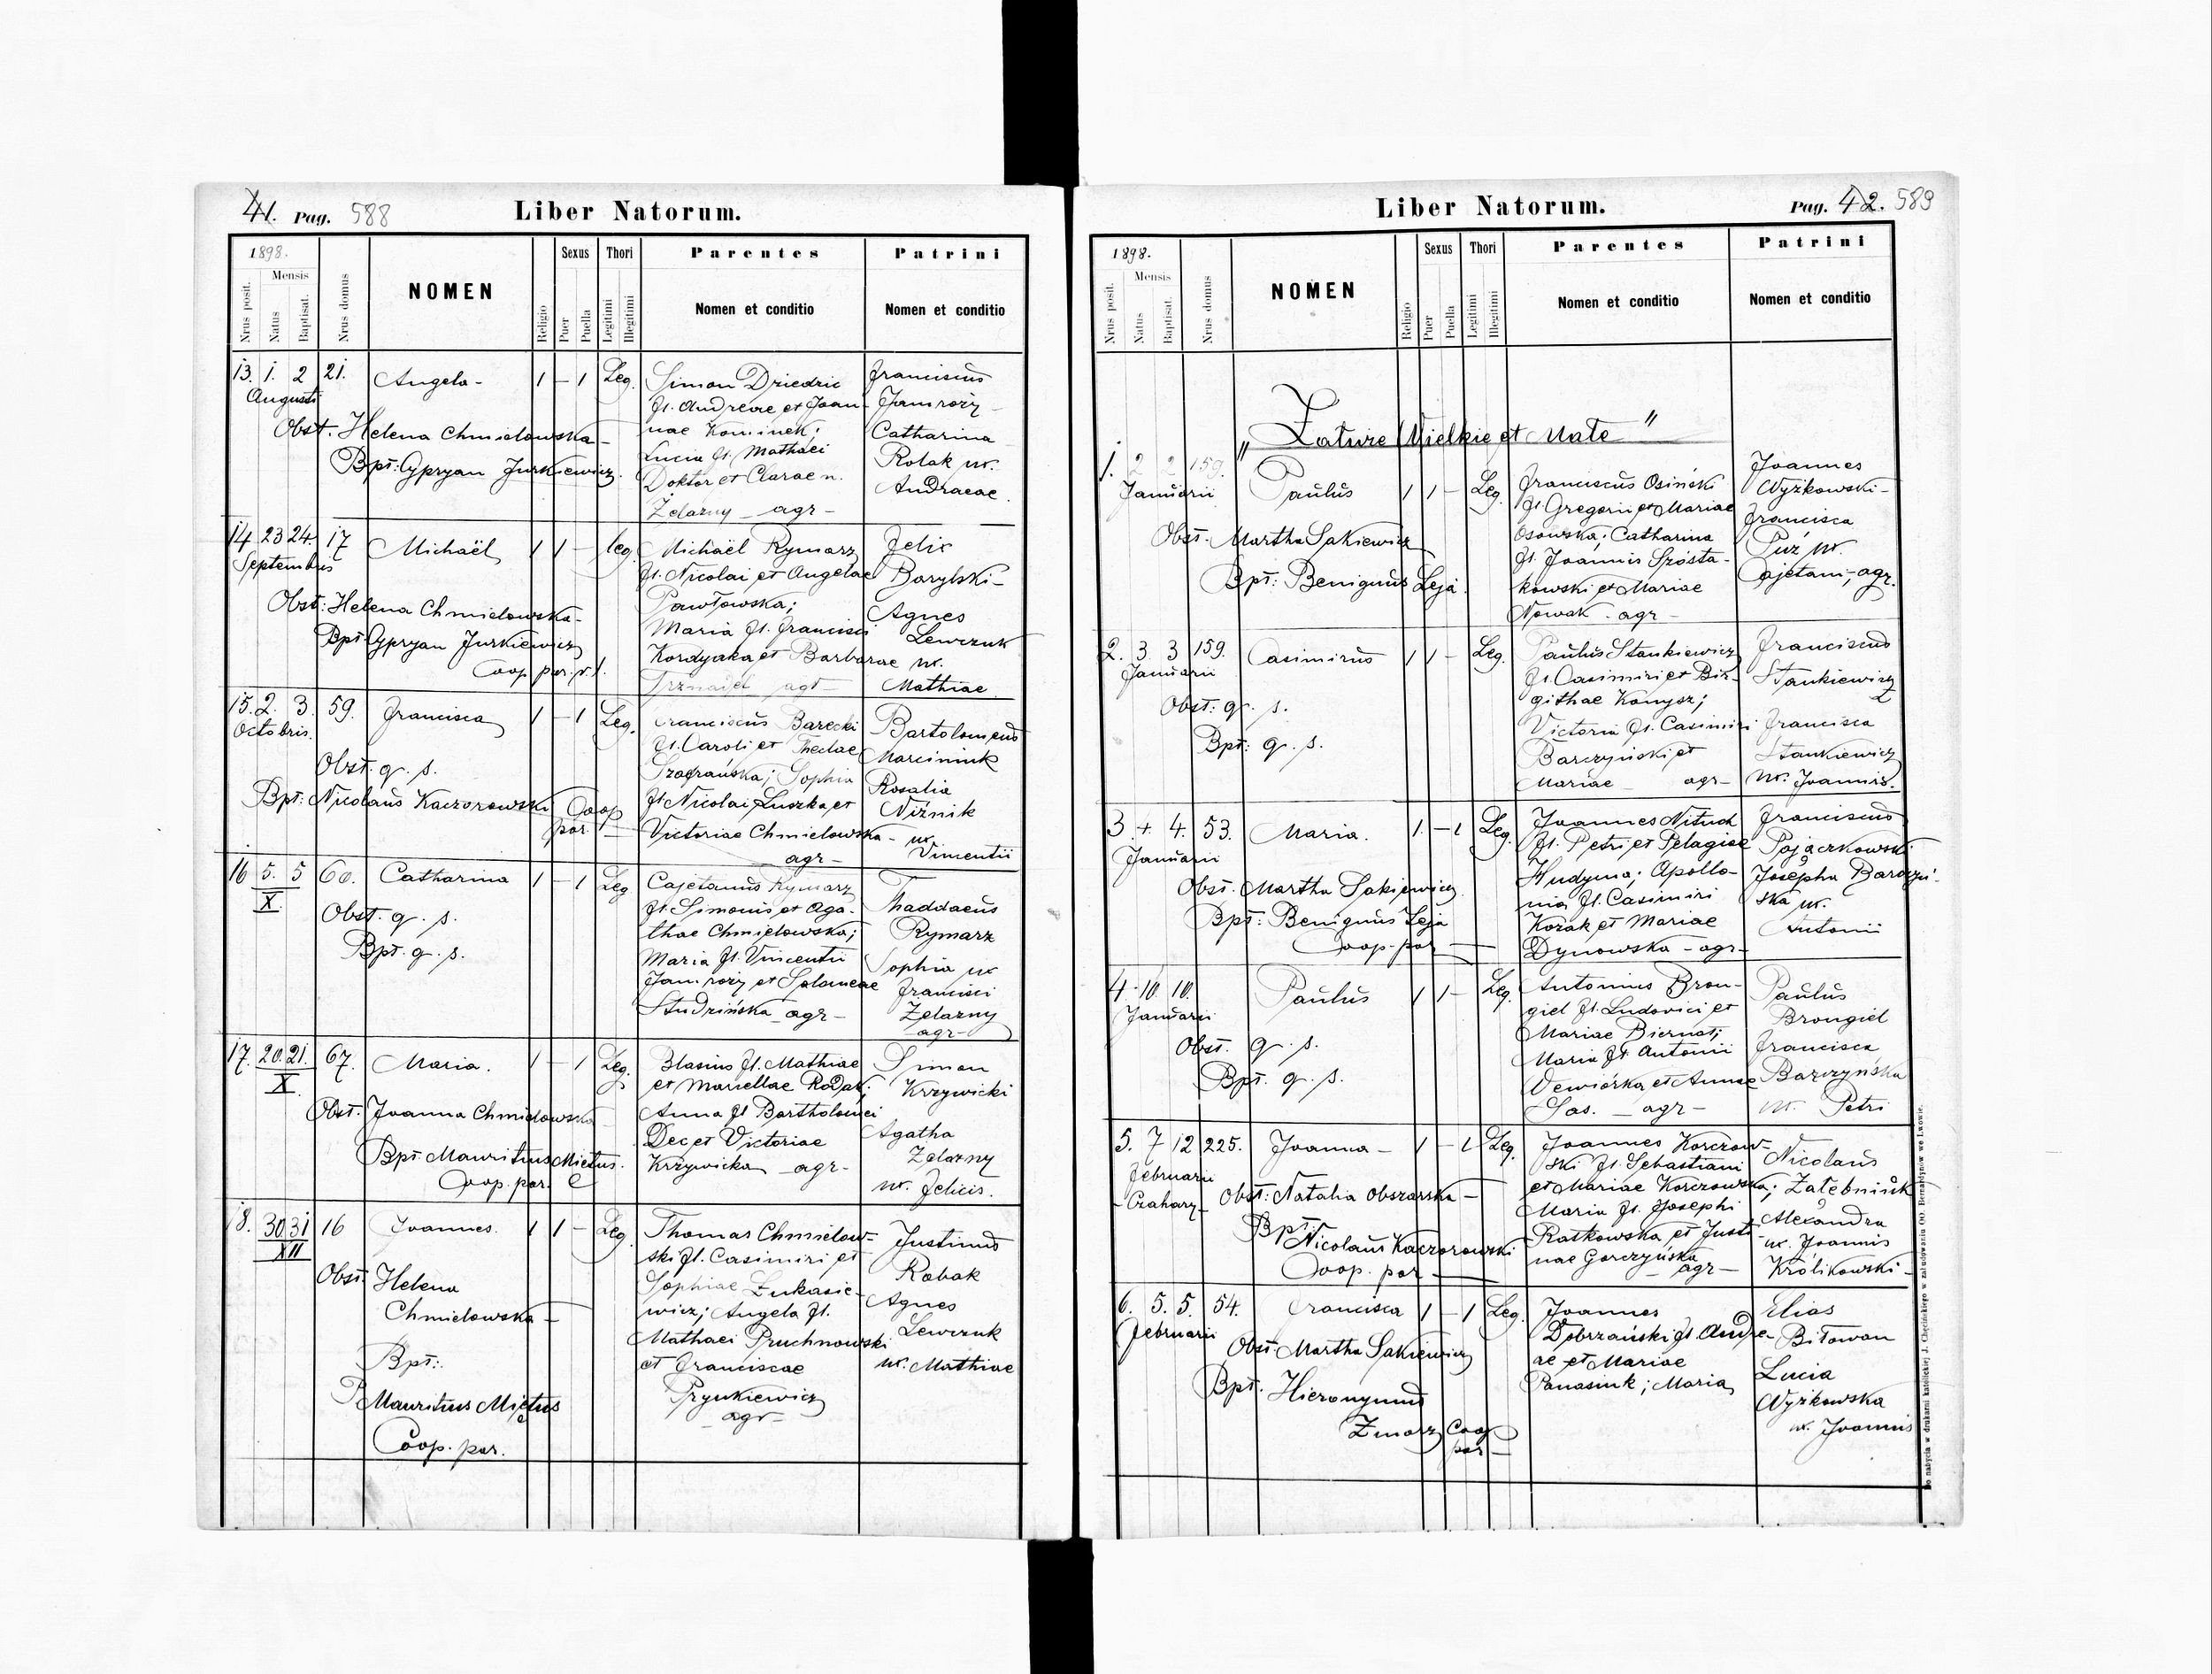 41. Pag. 588
Liber Natorum.
1898.
Mensis
Nrus posit.
Natus
Baptisat.
Nrus domus
NOMEN
Religio
Sexus
Puer
Puella
Thori
Legitimi
Illegitimi
Parentes
Nomen et conditio
Patrini
Nomen et conditio
13. 1. 2 21.
Augusti
Angela -
1 - 1 Leg.
Obst. Helena Chmielowska -
Bpt: Cypryan Jurkiewicz.
Simon Dziedzic
fl. Andreae et Joan-
nae Kominek;
Lucia fl. Mathaei
Doktor et Clarae n.
Żelazny - agr -
Franciscus
Jamroży -
Catharina
Robak ux.
Andraeae.
14. 23 24. 17
Septembris
Michaël
1 1 - leg.
Obst: Helena Chmielowska -
Bpt. Cypryan Jurkiewicz
Coop. par. r. l.
Michaël Rymarz
fl. Nicolai et Angelae
Pawłowska;
Maria fl. Francisci
Kordyaka et Barbarae
Trznadel agr -
Felix
Barylski -
Agnes
Lewczuk
ux.
Mathiae.
15. 2. 3. 59.
Octobris.
Francisca
1 - 1 Leg.
Obst. q. s.
Bpt: Nicolaus Kaczorowski Coop
par. -
Franciscus Barecki
fl. Caroli et Theclae
Szagrańska; Sophia
fl. Nicolai Luszka et
Victoriae Chmielowska -
agr -
Bartolomeus
Marciniuk
Rosalia
Niżnik
ux.
Vincentii
16 5. 5 60.
X.
Catharina
1 - 1 Leg
Obst. q. s.
Bpt. q. s.
Cajetanus Rymarz
fl. Simonis et Aga-
thae Chmielowska;
Maria fl. Vincentii
Jamroży et Salomeae
Studzińska - agr -
Thaddaeus
Rymarz
Sophia ux
Francisci
Żelazny
- agr -
17. 20. 21. 67.
X.
Maria.
1 - 1 Leg.
Obst: Joanna Chmielowska -
Bpt. Mauritius Miętus.
Coop. par.
Blasius fl. Mathiae
et Mariellae Robak;
Anna fl. Bartholomei
Dec et Victoriae
Krzywicka - agr -
Simon
Krzywicki
Agatha
Żelazny
ux. Felicis.
18. 30 31 16
XII
Joannes.
1 1 - Leg.
Obst. Helena
Chmielowska -
Bpt:
Mauritius Miętus
Coop. par.
Thomas Chmielow-
ski fl. Casimiri et
Sophiae Łukasie-
wicz; Angela fl.
Mathaei Pruchnowski
et Franciscae
Prynkiewicz
- agr -
Justinus
Robak
Agnes
Lewczuk
ux. Mathiae
Liber Natorum.
Pag. 42. 589
1898.
Mensis
Nrus posit.
Natus
Baptisat.
Nrus domus
NOMEN
Religio
Sexus
Puer
Puella
Thori
Legitimi
Illegitimi
Parentes
Nomen et conditio
Patrini
Nomen et conditio
„ Łatwie Wielkie et Małe "
1. 2 2 159.
Januarii
Paulus
1 1 - Leg.
Obst. Martha Sakiewicz
Bpt: Benignus Leja.
Franciscus Osiński
fl. Gregorii et Mariae
Osowska; Catharina
fl. Joannis Szósta-
kowski et Mariae
Nowak - agr -
Joannes
Wyżkowski -
Francisca
Puź ux.
Cajetani, agr.
2. 3. 3 159.
Januarii
Casimirus
1 1 - Leg.
Obst: q. s.
Bpt: q. s.
Paulus Stankiewicz
fl. Casimiri et Bir-
githae Konysz;
Victoria fl. Casimiri
Barczyński et
Mariae agr -
Franciscus
Stankiewicz
Francisca
Stankiewicz
ux. Joannis.
3 4. 4. 53.
Januarii
Maria.
1. - 1 Leg.
Obst. Martha Sakiewicz
Bpt: Benignus Leja
Coop. par -
Joannes Nituch
fl. Petri et Pelagiae
Hudyma; Apollo-
nia fl. Casimiri
Kozak et Mariae
Dynowska - agr -
Franciscus
Pajączkowski
Josepha Barczyń-
ska ux.
Antonii
4. 10. 10.
Januarii
Paulus
1 1 - Leg.
Obst. q. s.
Bpt. q. s.
Antonius Bron-
giel fl. Ludovici et
Mariae Biernat;
Maria fl. Antonii
Wewiórka et Annae
Sas. - agr -
Paulus
Brongiel
Francisca
Barczyńska
ux. Petri
5. 7 12 225.
Februarii
- Czahary -
Joanna -
1 - 1 Leg.
Obst: Natalia Obszarska -
Bpt: Nicolaus Kaczorowski
Coop. par -
Joannes Korczow-
ski fl. Sebastiani
et Mariae Korczowska;
Maria fl. Josephi
Ratkowska et Justi-
nae Gorczyńska
- agr -
Nicolaus
Załebniuk
Alexandra
ux. Joannis
Królikowski -
6. 5. 5. 54.
Februarii
Francisca
1 - 1 Leg.
Obst: Martha Sakiewicz
Bpt. Hieronymus
Zmarz Coop
par -
Joannes
Dobrzański fl. Andre-
ae et Mariae
Panasiuk; Maria
Elias
Biłowan
Lucia
Wyżkowska
ux. Joannis
Do nabycia w drukarni katolickiej J. Chęcińskiego w zabudowaniu OO. Bernardynów we Lwowie.